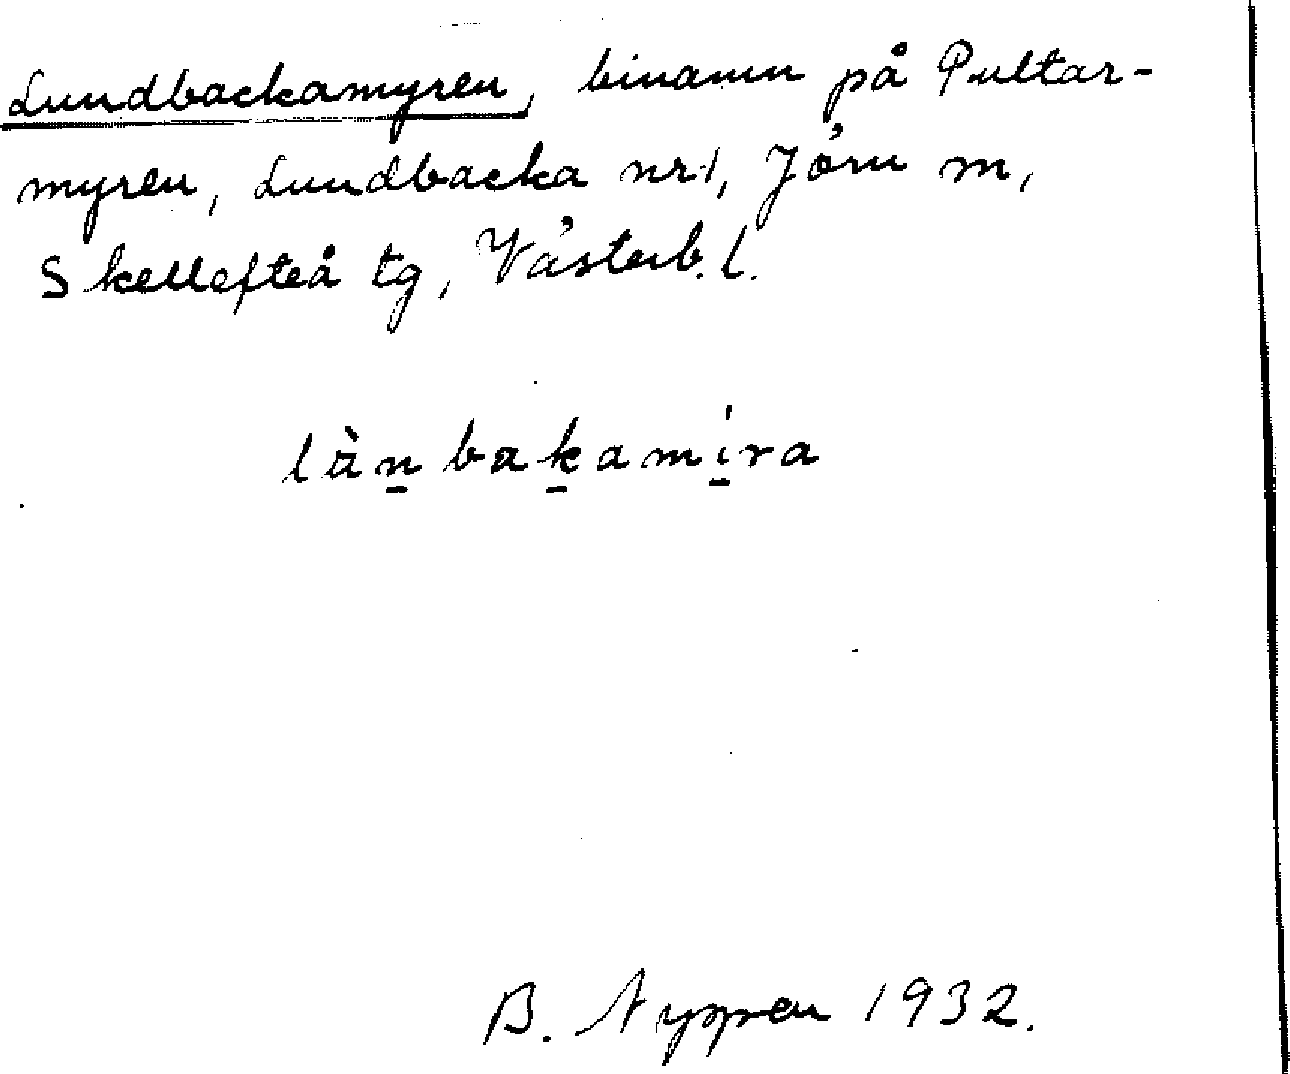 Lundbackamyren, binamn på Pultar-
myren, Lundbacka nr 1, Jörn m,
Skellefteå tg, Västerb. l.
làn̲bak̲amí̲ra
B. Nyppen 1932.